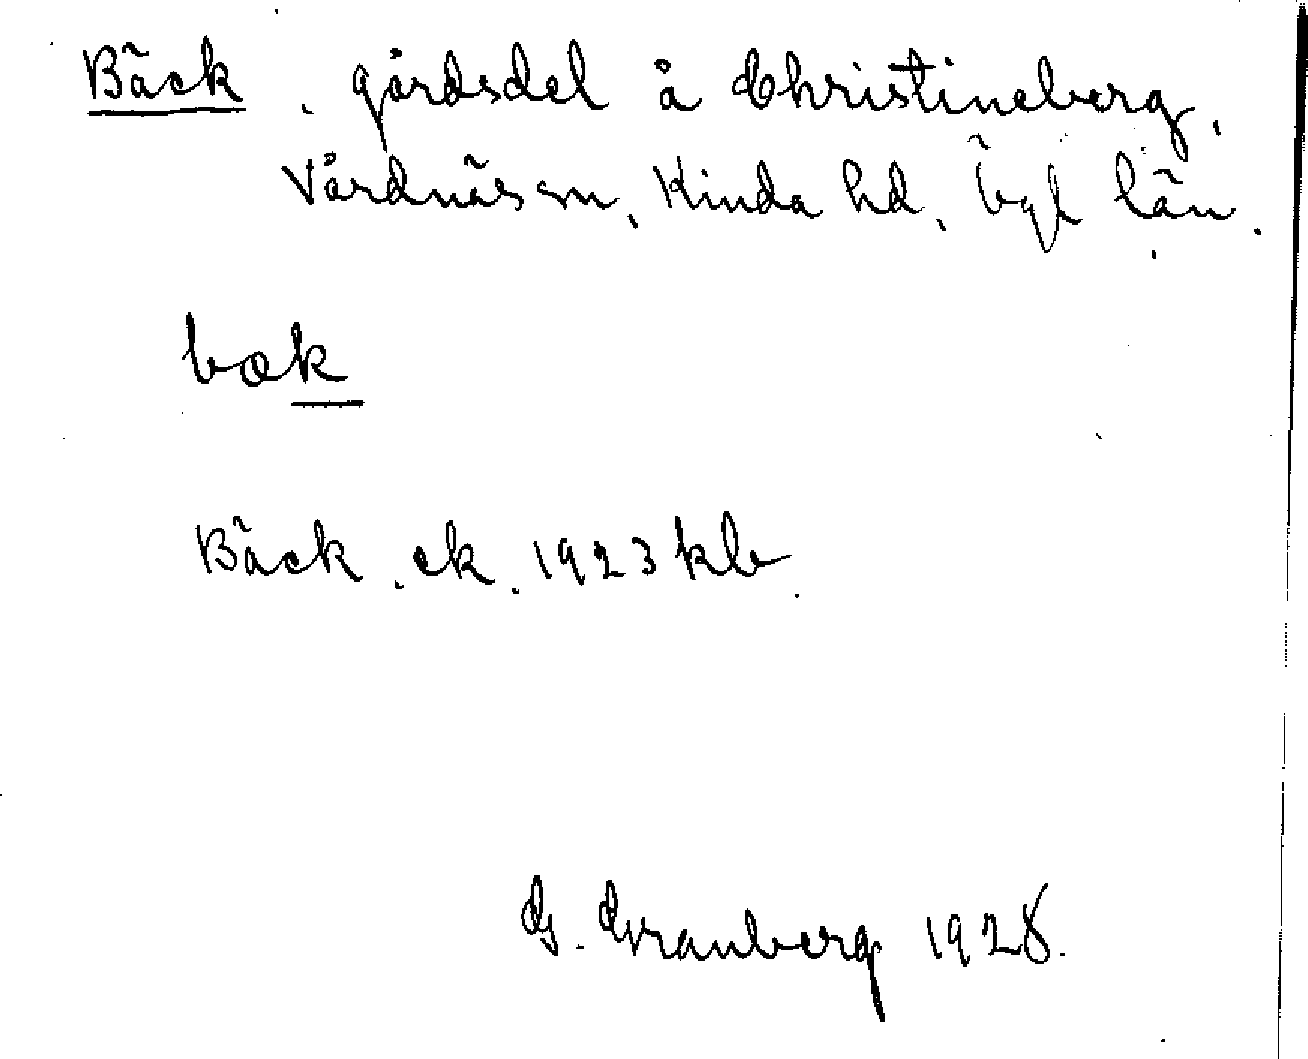 Bäck, gårdsdel å Christineberg,
Vårdnäs sn, Kinda hd, Ögl län.
bæk
Bäck, ek. 1923 kb.
G. Granberg 1928.